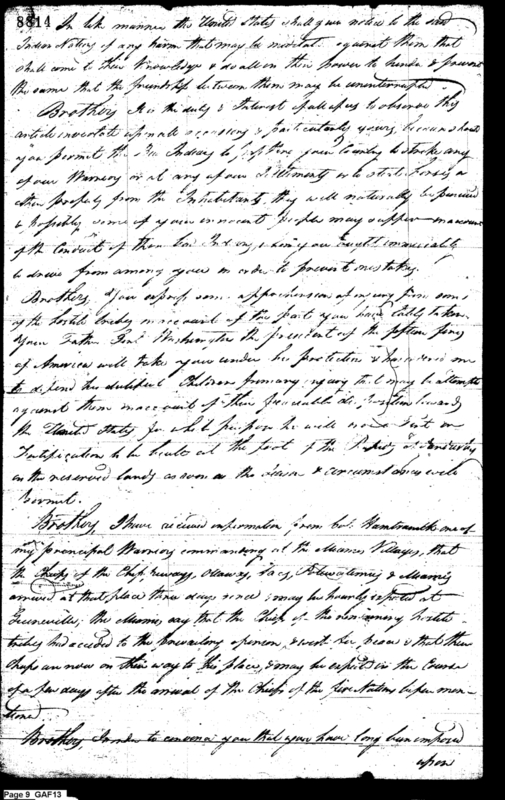 8814 In like manner the United States shall give notice to the said
Indian Nations of any harm that may be meditated against them that
shall come to their Knowledge & do all in their power to hinder & prevent
the same that the friendship between them may be uninterrupted
Brothers It is the duty & Interest of all of us to observe this
article inviolate upon all occasions & particularly yours, because should
you permit the Bad Indians to pass thro your Country to strike any
of our Warriors or at any of our Settlements or to steal horses or
other property from the Inhabitants, they will naturally be pursued
& possibly some of your innocent people may suffer on account
of the Conduct of those bad Indians, whom you ought immediately
to drive from among you in order to prevent mistakes.
Brothers, You express some apprehension of injury from some
of the hostile tribes on account of the part you have lately taken.
Your Father Genl Washington the president of the fifteen fires
of America will take you under his protection & has ordered me
to defend his dutiful Children from any injury that may be attempted
against them on account of their peaceable disposition towards
the United States for which purpose he will order a Fort or
Fortification to be built at the foot of the Rapids of Sandusky
on the reserved lands as soon as the season & circumstances will
permit.
Brothers, I have received information from Col. Hamtramck one of
my principal Warriors commanding at the Miamis Villages, that
the Chiefs of the Chipeways, Ottaways, Sacs, Potawatamies & Miamis
arrived at that place three days since & may be hourly expected at
Greeneville; the Miamis say that the Chiefs of the remaining hostile
tribes had acceded to the prevailing opinion, & wish for peace & that their
Chiefs are now on their way to this place, & may be expected in the Course
of a few days after the arrival of the Chiefs of the five Nations before men-
tioned
Brothers, In order to convince you that you have long been imposed
upon
Page 9 GAF13